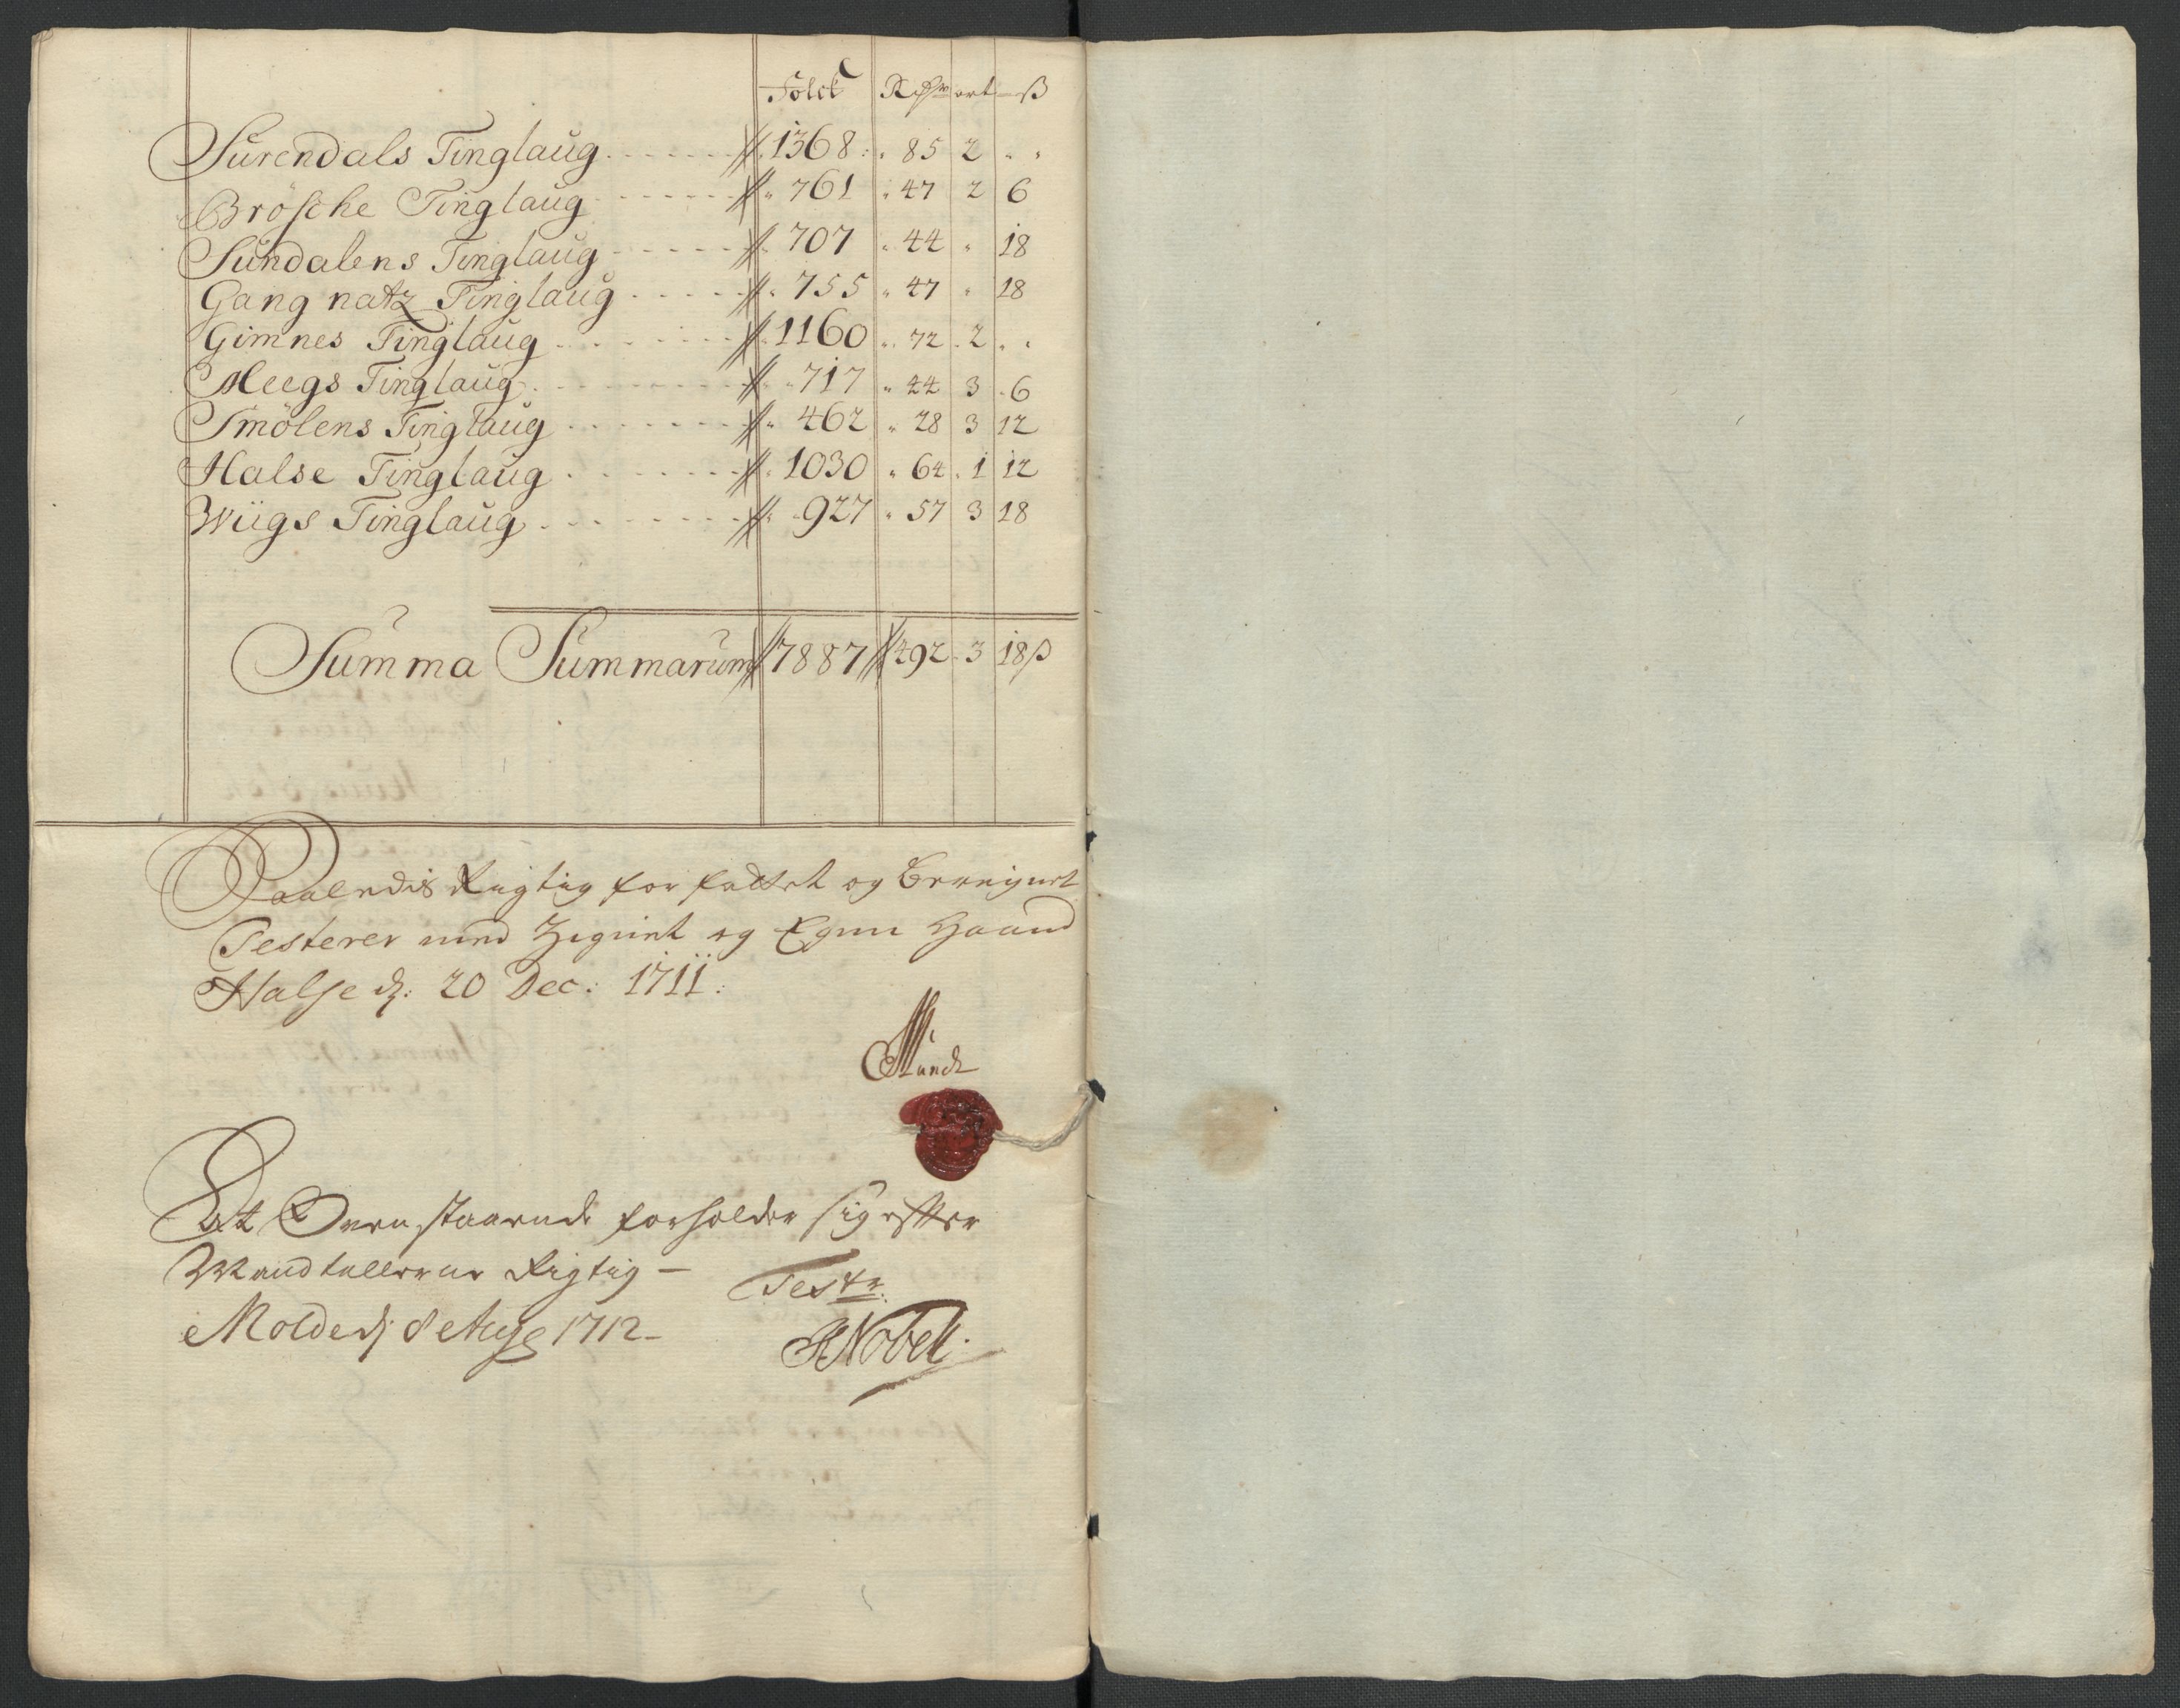 Folck Rdr ort ß
Surendals Tinglaug 1368 85 2 " "
Brösche Tinglaug 761 47 2 6
Sundalens Tinglaug 707 44 " 18
Gangnatz Tinglaug 755 47 " 18
Gimnes Tinglaug 1160 72 2 " "
Meegs Tinglaug 717 44 3 6
Smölens Tinglaug 462 28 3 12
Halse Tinglaug 1030 64 1 12
Wiigs Tinglaug 927 57 3 18
Summa Summarum 7887 492 3 18 ß
Saaledis Rigtig forfattet og Beregnet
Testerer med Zignet og Egen Haand
Halse d: 20 Dec: 1711:
Mundt
At Ovenstaaende forholder sig efter
Mandtallerne Rigtig —
Testr:
Molde dj 8 Aug 1712 —
Nobell.